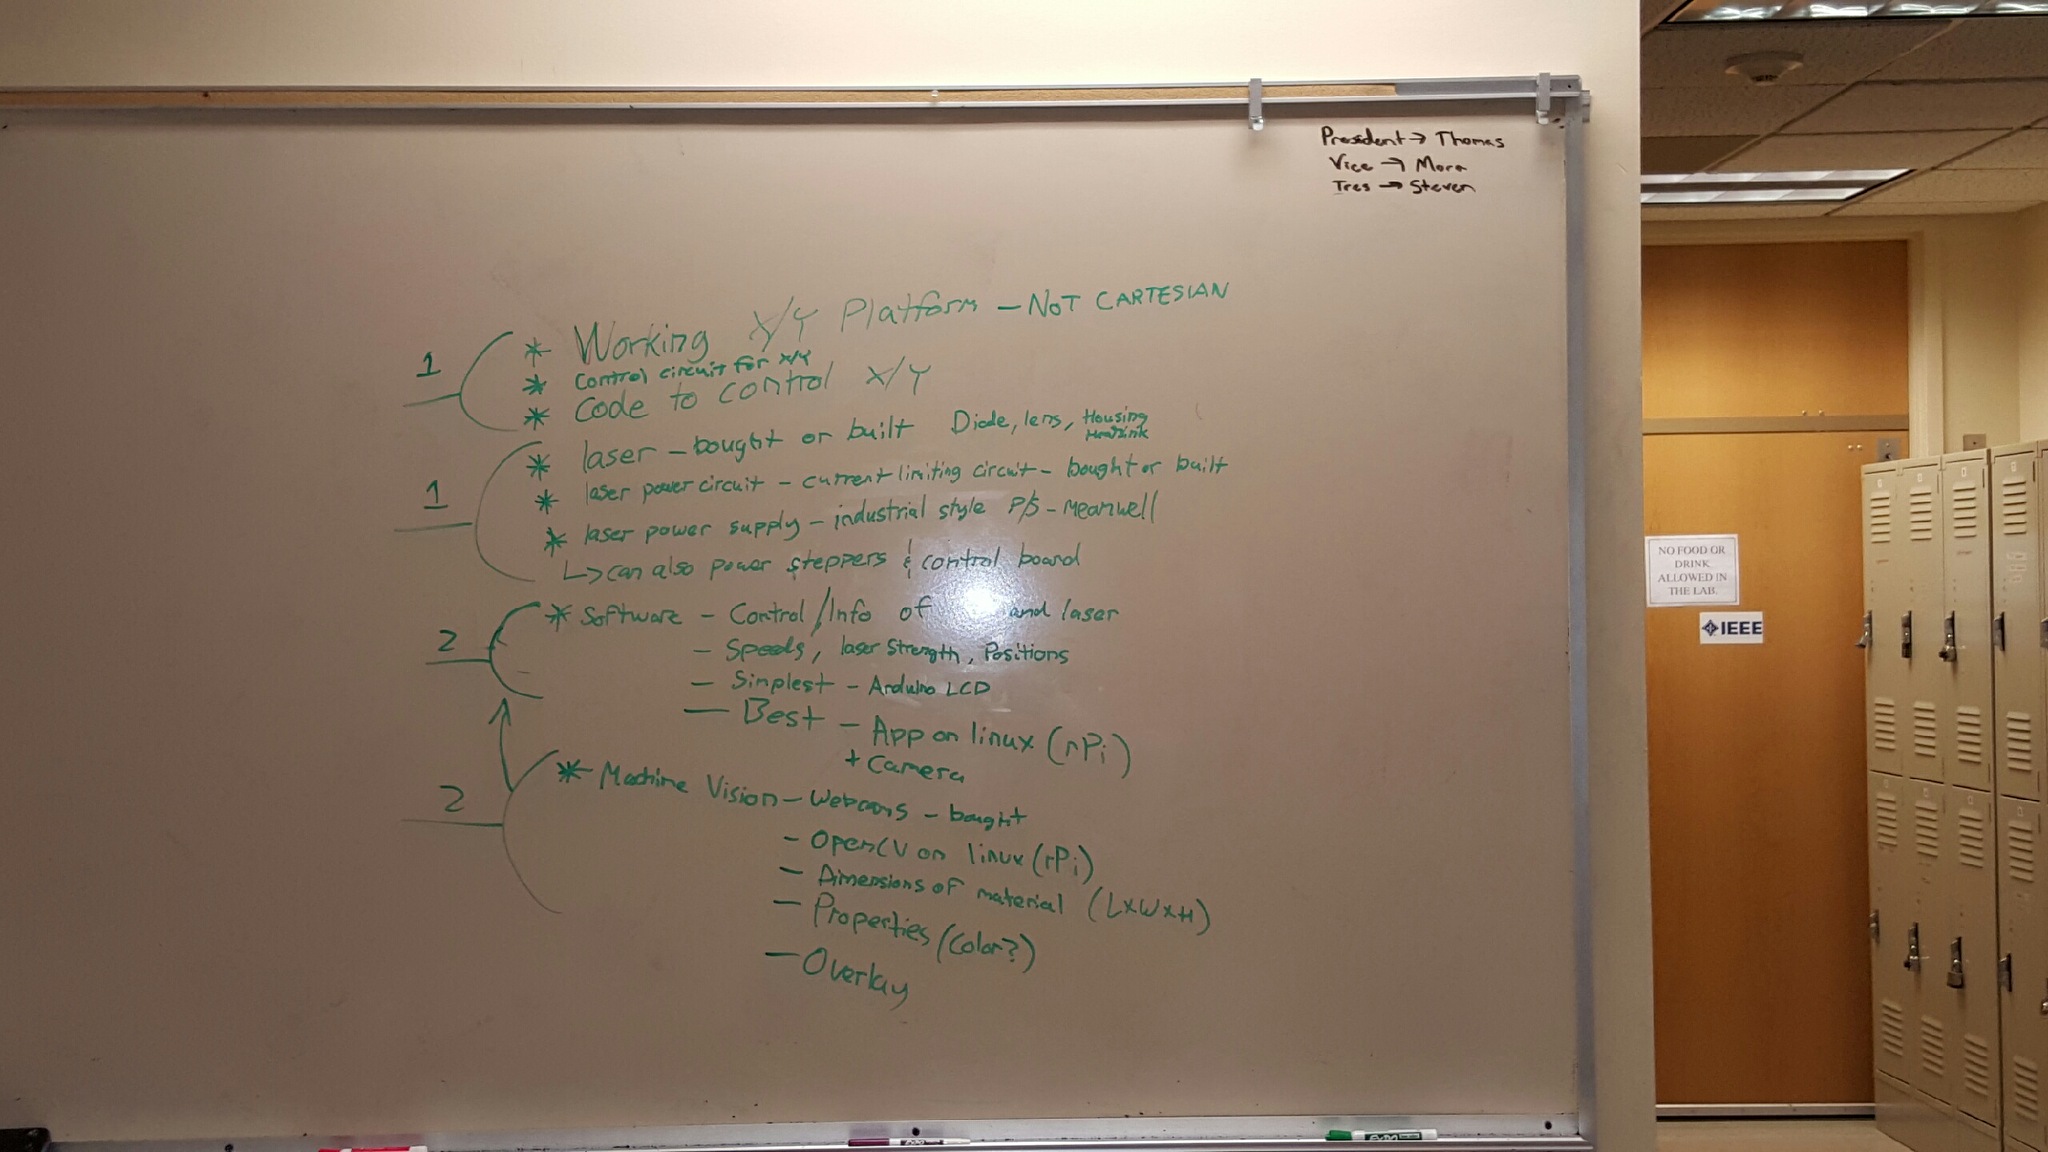 President → Thomas
Vice → Mora
Tres → Steven
1
* Working X/Y Platform - NOT CARTESIAN
* control circuit for X/Y
* Code to control X/Y
1
* laser - bought or built Diode, lens, Housing
Heatsink
* laser power circuit - current limiting circuit - bought or built
* laser power supply - industrial style P/S - meanwell
↳ can also power steppers & control board
2
* Software - Control/Info of and laser
- Speeds, laser strength, Positions
- Simplest - Arduino LCD
- Best - App on linux (rPi)
+ Camera
2
* Machine Vision - Webcams - bought
- OpenCV on linux (rPi)
- Dimensions of material (LxWxH)
- Properties (Color?)
- Overlay
NO FOOD OR
DRINK
ALLOWED IN
THE LAB.
IEEE
EXPO
EXPO